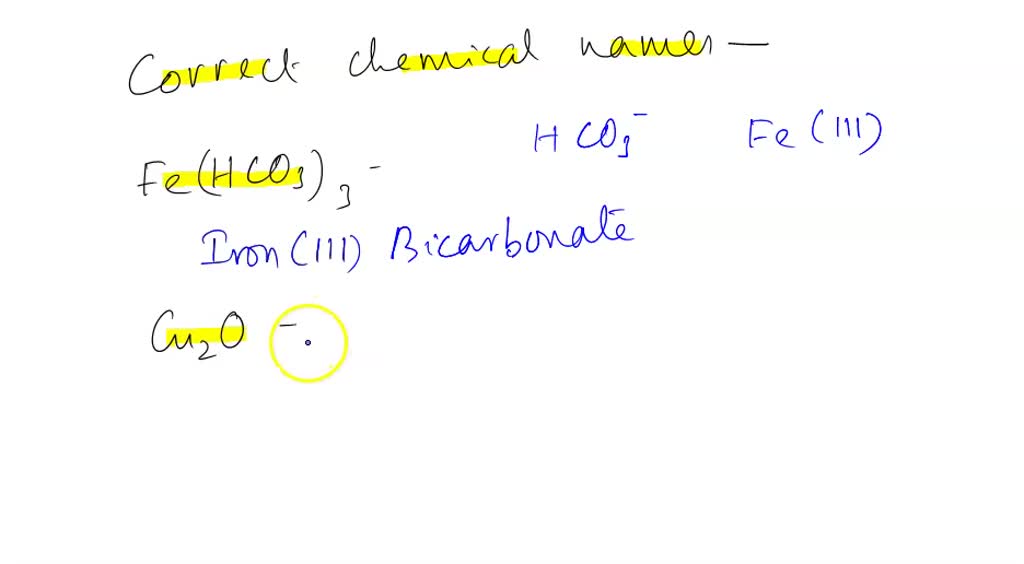 Correct chemical names —
HCO₃⁻ Fe (III)
Fe(HCO₃)₃ -
Iron (III) Bicarbonate
Cu₂O -